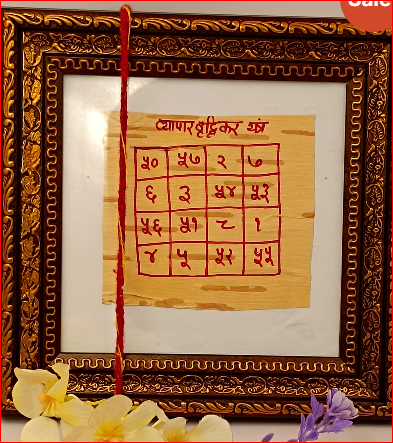 Sale
व्यापार वृद्धिकर यंत्र
५० ५७ २ ७
६ ३ ५४ ५३
५६ ५१ ८ १
४ ५ ५२ ५५